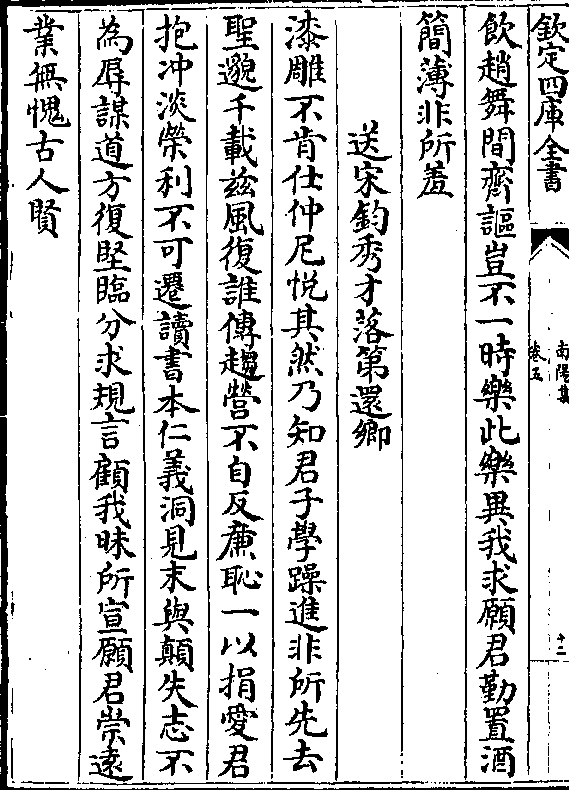 欽定四庫全書
南陽集
卷五
十二
飲趙舞間齊謳豈不一時樂此樂異我求願君勤置酒
簡薄非所羞
送宋鈞秀才落第還鄉
漆雕不肯仕仲尼悅其然乃知君子學躁進非所先去
聖邈千載兹風復誰傳趨營不自反廉恥一以捐愛君
抱冲淡榮利不可遷讀書本仁義洞見末與顛失志不
為辱謀道方復堅臨分求規言顧我昧所宣願君崇遠
業無愧古人賢